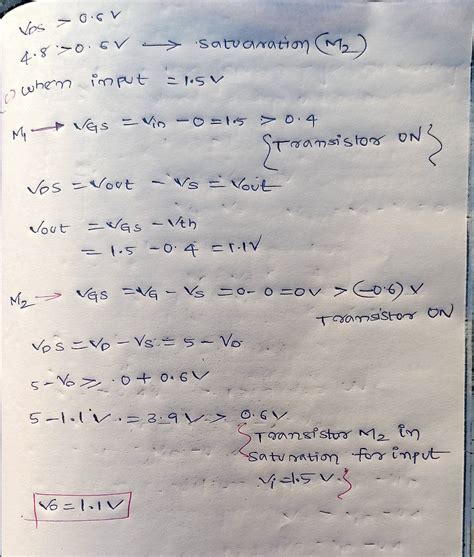 VDS > 0.6V
4.8 > 0.6V → saturation (M2)
when input = 1.5V
M1 → VGS = Vin - 0 = 1.5 > 0.4
{Transistor ON}
VDS = Vout - VS = Vout
Vout = VGS - Vth
= 1.5 - 0.4 = 1.1V
M2 → VGS = VG - VS = 0 - 0 = 0V > (-0.6) V
Transistor ON
VDS = VD - VS = 5 - Vo
5 - Vo ≥ 0 + 0.6V
5 - 1.1V = 3.9V > 0.6V
{Transistor M2 in
saturation for input
Vi = 1.5V.}
Vo = 1.1V